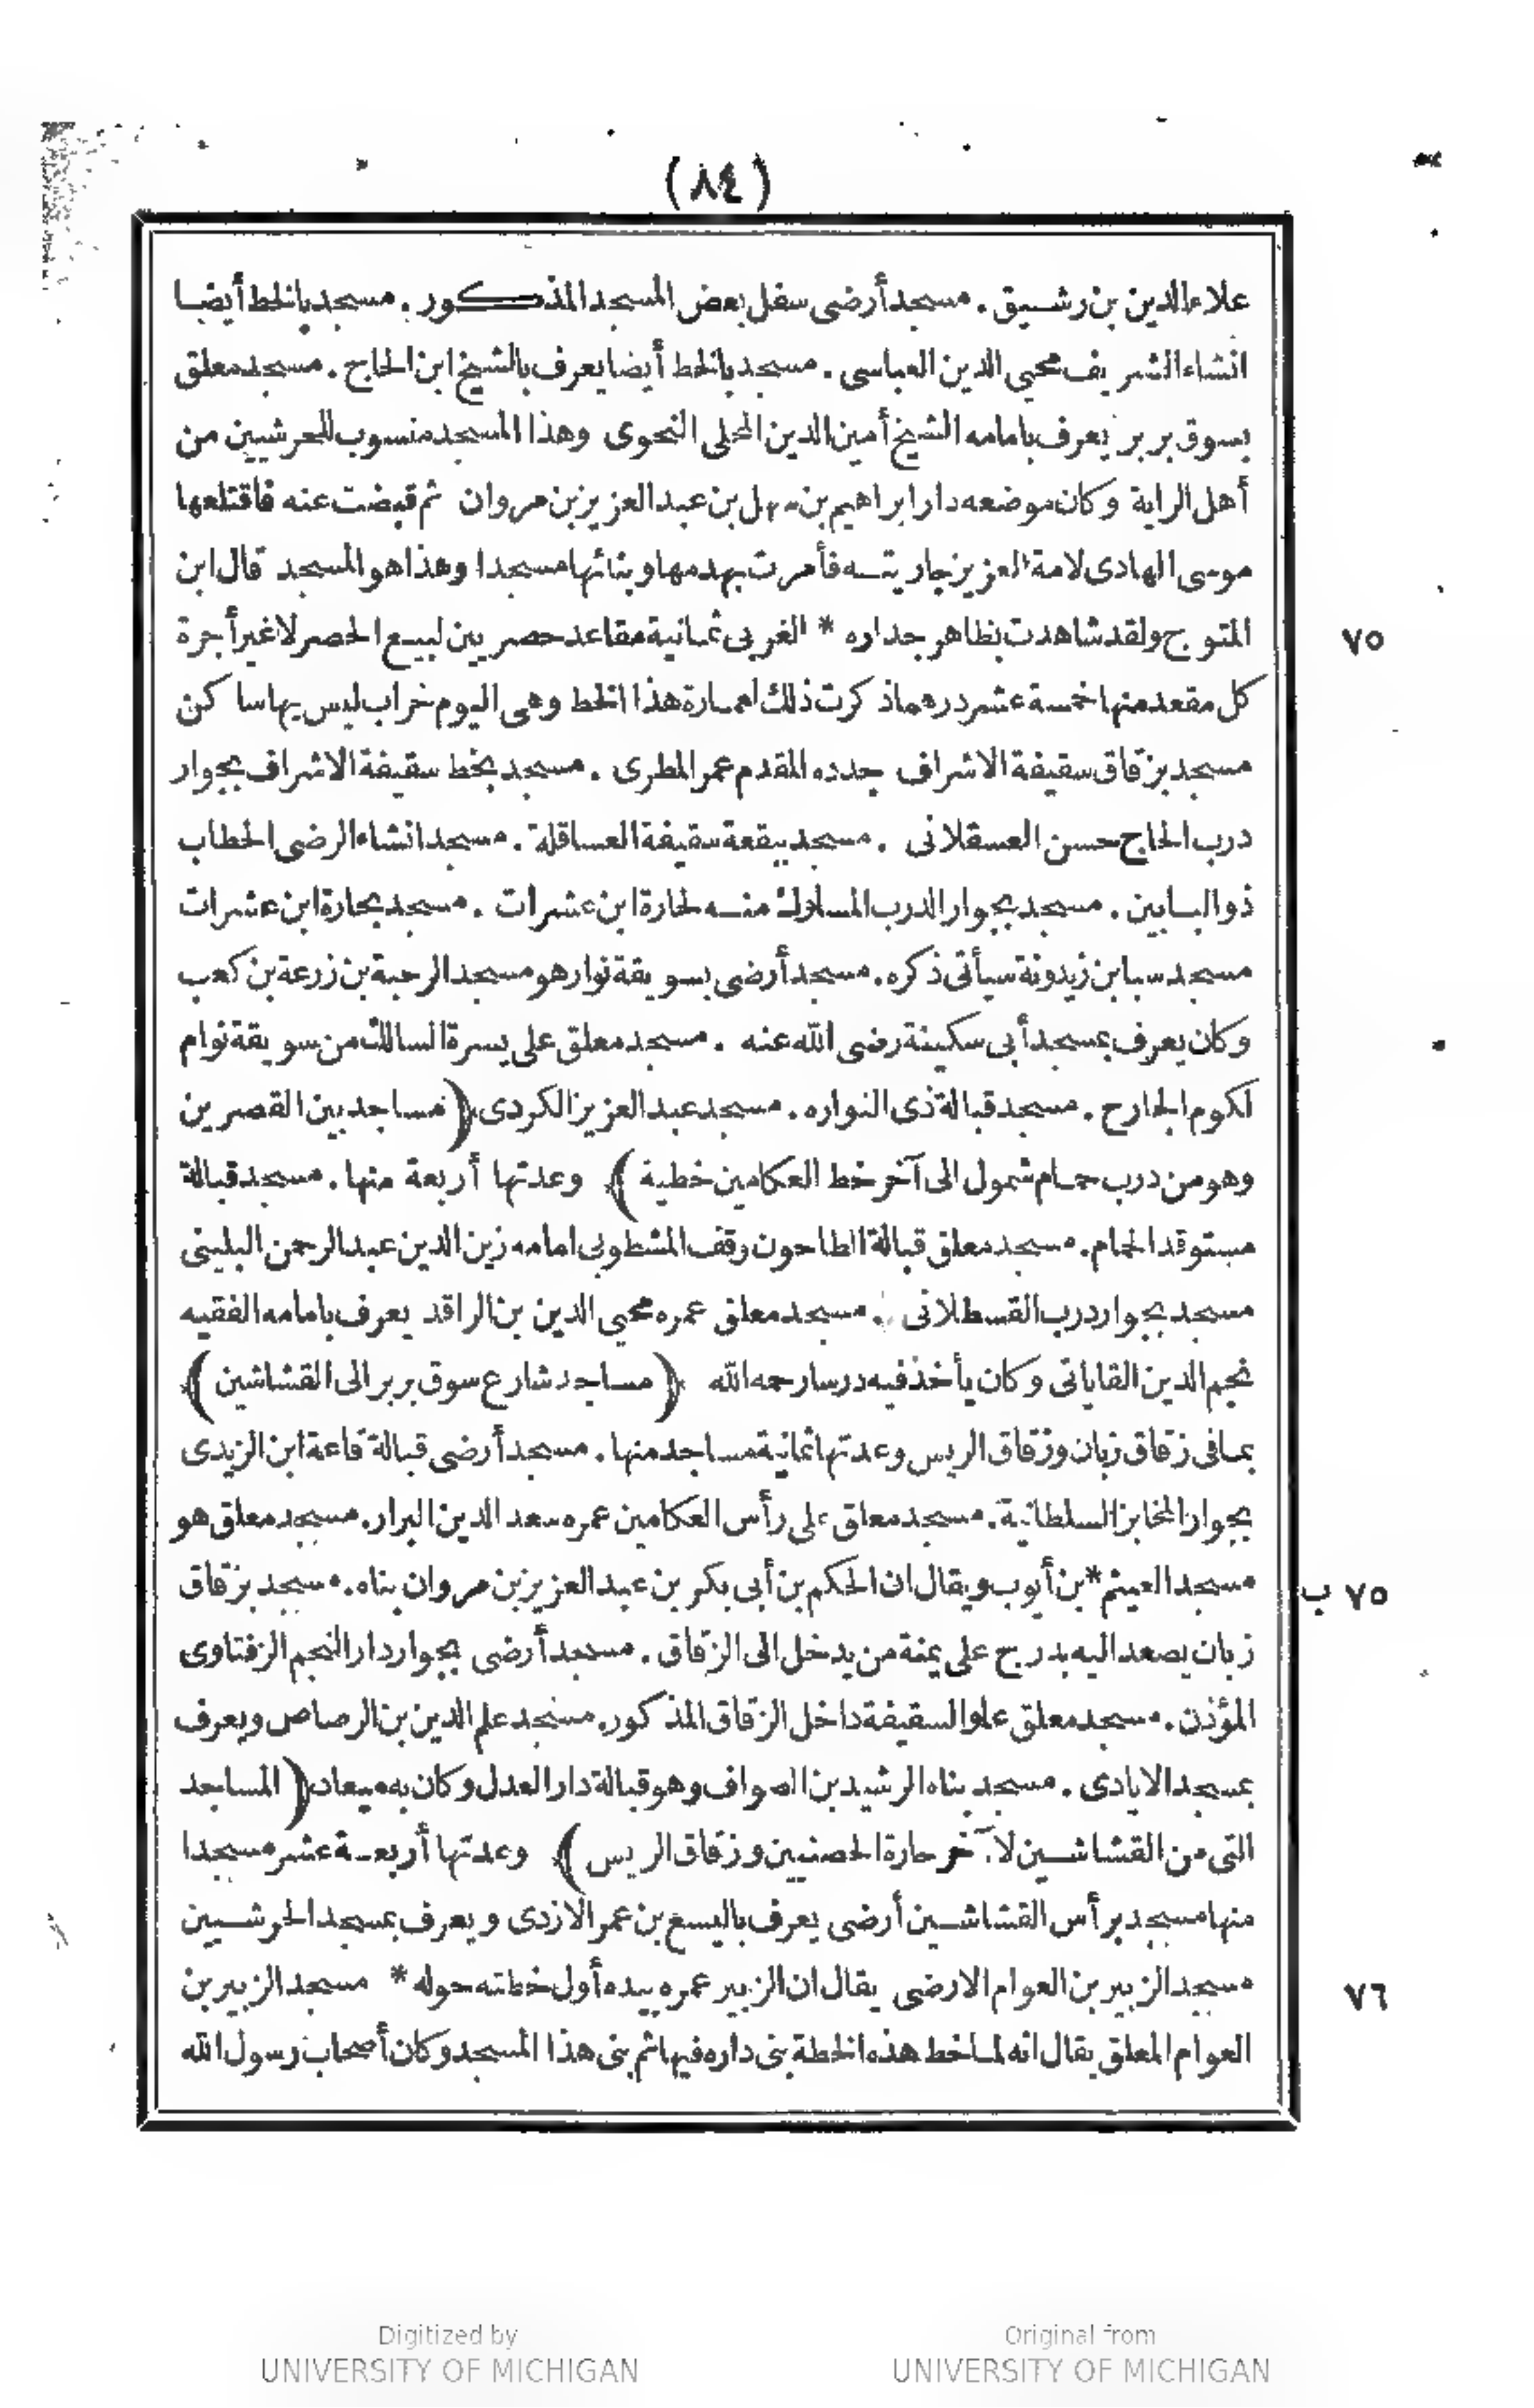 (٨٤)
علاء الدين بن رشيق . مسجد أرضى سفل بعض المسجد المذكور . مسجد بالخط أيضا
انشاء الشريف محيي الدين العباسى . مسجد بالخط أيضا يعرف بالشيخ ابن الحاج . مسجد معلق
بسوق بربر يعرف بامامه الشيخ أمين الدين المحلى النحوى وهذا المسجد منسوب للحرشيين من
أهل الراية وكان موضعه دار ابراهيم بن سهل بن عبد العزيز بن مروان ثم قبضت عنه فاقتلعها
موسى الهادى لامة العزيز جاريته فأمرت بهدمها وبنائها مسجدا وهذا هو المسجد قال ابن
المتوج ولقد شاهدت بظاهر جداره * الغربى ثمانية مقاعد حصريين لبيع الحصر لاغير أجرة
٧٥
كل مقعد منها خمسة عشر درهما ذكرت ذلك لعمارة هذا الخط وهى اليوم خراب ليس بها ساكن
مسجد بزقاق سقيفة الاشراف جدده المقدم عمر المطرى . مسجد بخط سقيفة الاشراف بجوار
درب الحاج حسن العسقلانى . مسجد ببقعة سقيفة العساقلة . مسجد انشاء الرضى الحطاب
ذو البابين . مسجد بجوار الدرب المسلوك منه لحارة ابن عشرات . مسجد بحارة ابن عشرات
مسجد سبا بن زيدونة سيأتى ذكره . مسجد أرضى بسويقة نوار هو مسجد الرحبة بن زرعة بن كعب
وكان يعرف بمسجد أبى سكينة رضى الله عنه . مسجد معلق على يسرة السالك من سويقة نوام
لكوم الجارح . مسجد قبالة ذى النواره . مسجد عبد العزيز الكردى ﴿ مساجد بين القصرين
وهو من درب حمام شمول الى آخر خط العكامين خطية ﴾ وعدتها أربعة منها . مسجد قبالة
مستوقد الحمام . مسجد معلق قبالة الطاحون وقف المشطوبى امامه زين الدين عبد الرحمن البلينى
مسجد بجوار درب القسطلانى . مسجد معلق عمره محيي الدين بن الراقد يعرف بامامه الفقيه
نجم الدين القاياتى وكان يأخذ فيه درسا رحمه الله ﴿ مساجد شارع سوق بربر الى القشاشين ﴾
بما فى زقاق زبان وزقاق الريس وعدتها ثمانية مساجد منها . مسجد أرضى قبالة قاعة ابن الزيدى
بجوار المخابز السلطانية . مسجد معلق على رأس العكامين عمره سعد الدين البزار . مسجد معلق هو
مسجد العيثم * بن أيوب ويقال ان الحكم بن أبى بكر بن عبد العزيز بن مروان بناه . مسجد بزقاق
٧٥ ب
زبان يصعد اليه بدرج على يمنة من يدخل الى الزقاق . مسجد أرضى بجوار دار النجم الزفتاوى
المؤذن . مسجد معلق علو السقيفة داخل الزقاق المذكور . مسجد علم الدين بن الرصاص ويعرف
بمسجد الايادى . مسجد بناه الرشيد بن الصواف وهو قبالة دار العدل وكان به ميعاد ﴿ المساجد
التى من القشاشين لآخر حارة الحصنيين وزقاق الريس ﴾ وعدتها أربعة عشر مسجدا
منها مسجد برأس القشاشين أرضى يعرف باليسع بن عمر الازدى ويعرف بمسجد الحرشيين
مسجد الزبير بن العوام الارضى يقال ان الزبير عمره بيده أول خطته حوله * مسجد الزبير بن
٧٦
العوام المعلق يقال انه لما خط هذه الخطة بنى داره فيها ثم بنى هذا المسجد وكان أصحاب رسول الله
Digitized by
UNIVERSITY OF MICHIGAN
Original from
UNIVERSITY OF MICHIGAN